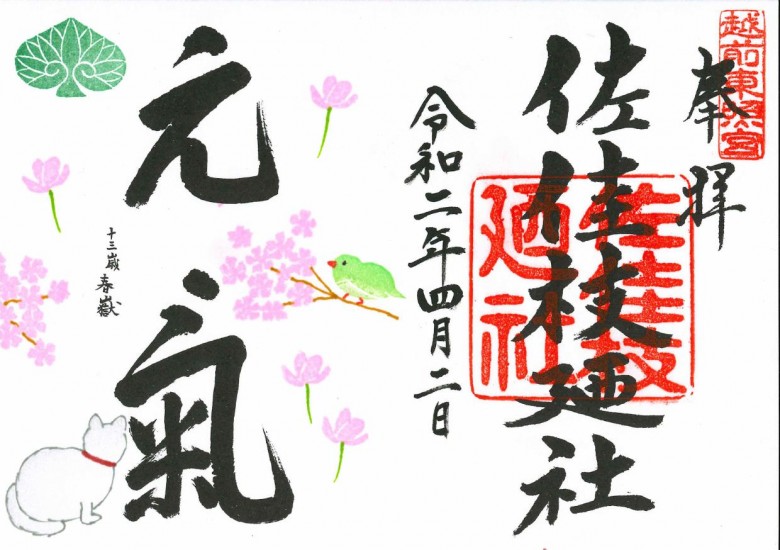 越前東照宮
奉拝
佐佳枝廼社
佐佳枝
廼社
令和二年四月二日
元氣
十三歳 春嶽